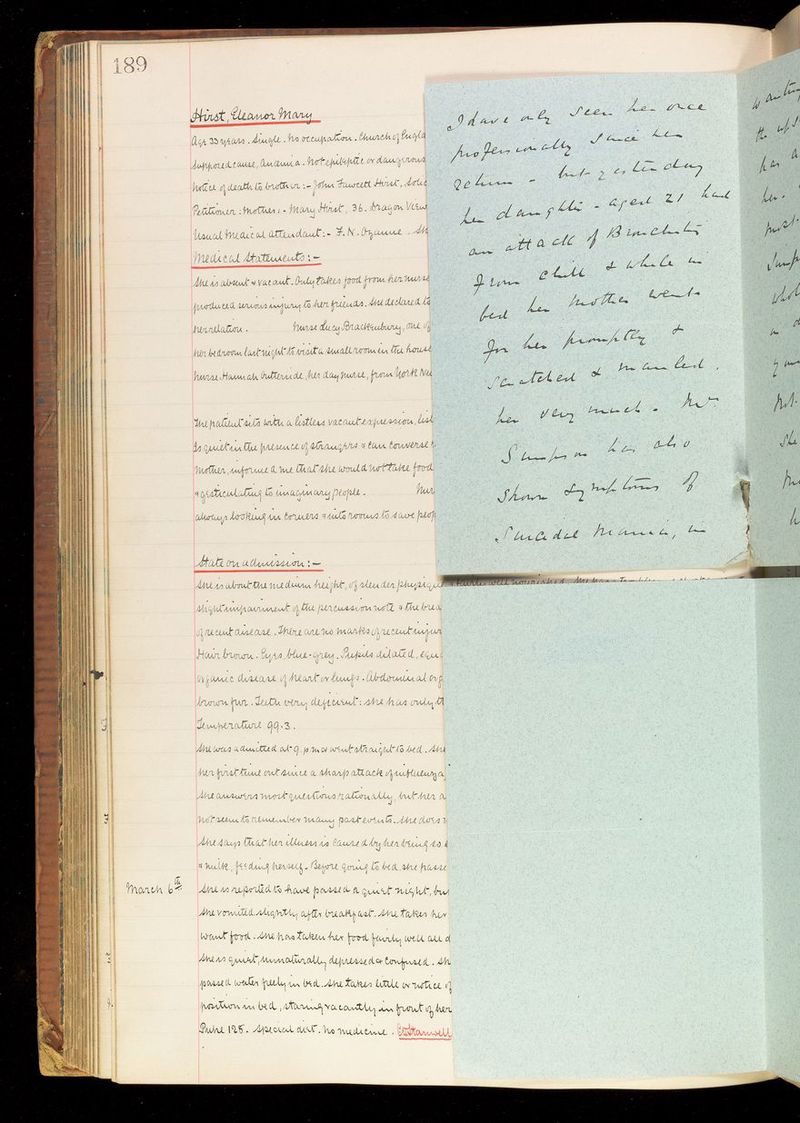 189
Hirst, Eleanor Mary
Age 33 years. Single. No occupation. Church of Engla
Supposed cause, Anaemia. Not epileptic or dangerous
Notice of death to brother:- John Fawcett Hirst,
Petitioner: Mother:- Mary Hirst, 36. Dragon View
Usual medical attendant:- F. N.
Medical Statements:-
She is absent & vacant. Only takes food from her nurse
produced serious injury to her friends. She declared to
her relation. Nurse Lucy Brackenbury, one of
her bedroom last night to visit a small room in the house
Nurse Hannah Butteride, her day nurse, from North
The patient sits with a listless vacant expression,
Is quiet in the presence of strangers & can converse
Mother, informed me that she would not take food
& gesticulating to imaginary people. Nur
always looking in corners & into rooms to save peop
State on admission:-
She is about the medium height, of slender physique
slight impairment of the percussion note & the brea
of recent disease. There are no marks of recent injur
Hair brown. Eyes, blue-grey. Pupils dilated, equ
organic disease of heart or lungs. Abdominal org
brown fur. Teeth very deficient: she has only
Temperature 99.3.
She was admitted at 9. p.m. & went straight to bed. She
her first time out since a sharp attack of influenza
She answers most questions rationally, but her
not seem to remember many past events. She does
She says that her illness is caused by her being so
& milk, feeding herself. Before going to bed, she passe
March 6th She is reported to have passed a quiet night, but
she vomited slightly after breakfast. She takes her
want food. She has taken her food fairly well all d
She is quiet, unnaturally depressed & confused. Sh
passed water freely in bed. She takes little or notice of
position in bed, staring vacantly in front of her
Pulse 128. Special diet. No medicine.
I have only seen her once
professionally since her
return - but yesterday
her daughter - aged 21 had
an attack of Bronchitis
from chill & while in
bed her mother went
for her promptly &
scratched & mauled
her very much. Mrs.
Simpson has also
shown symptoms of
Suicidal Mania, in